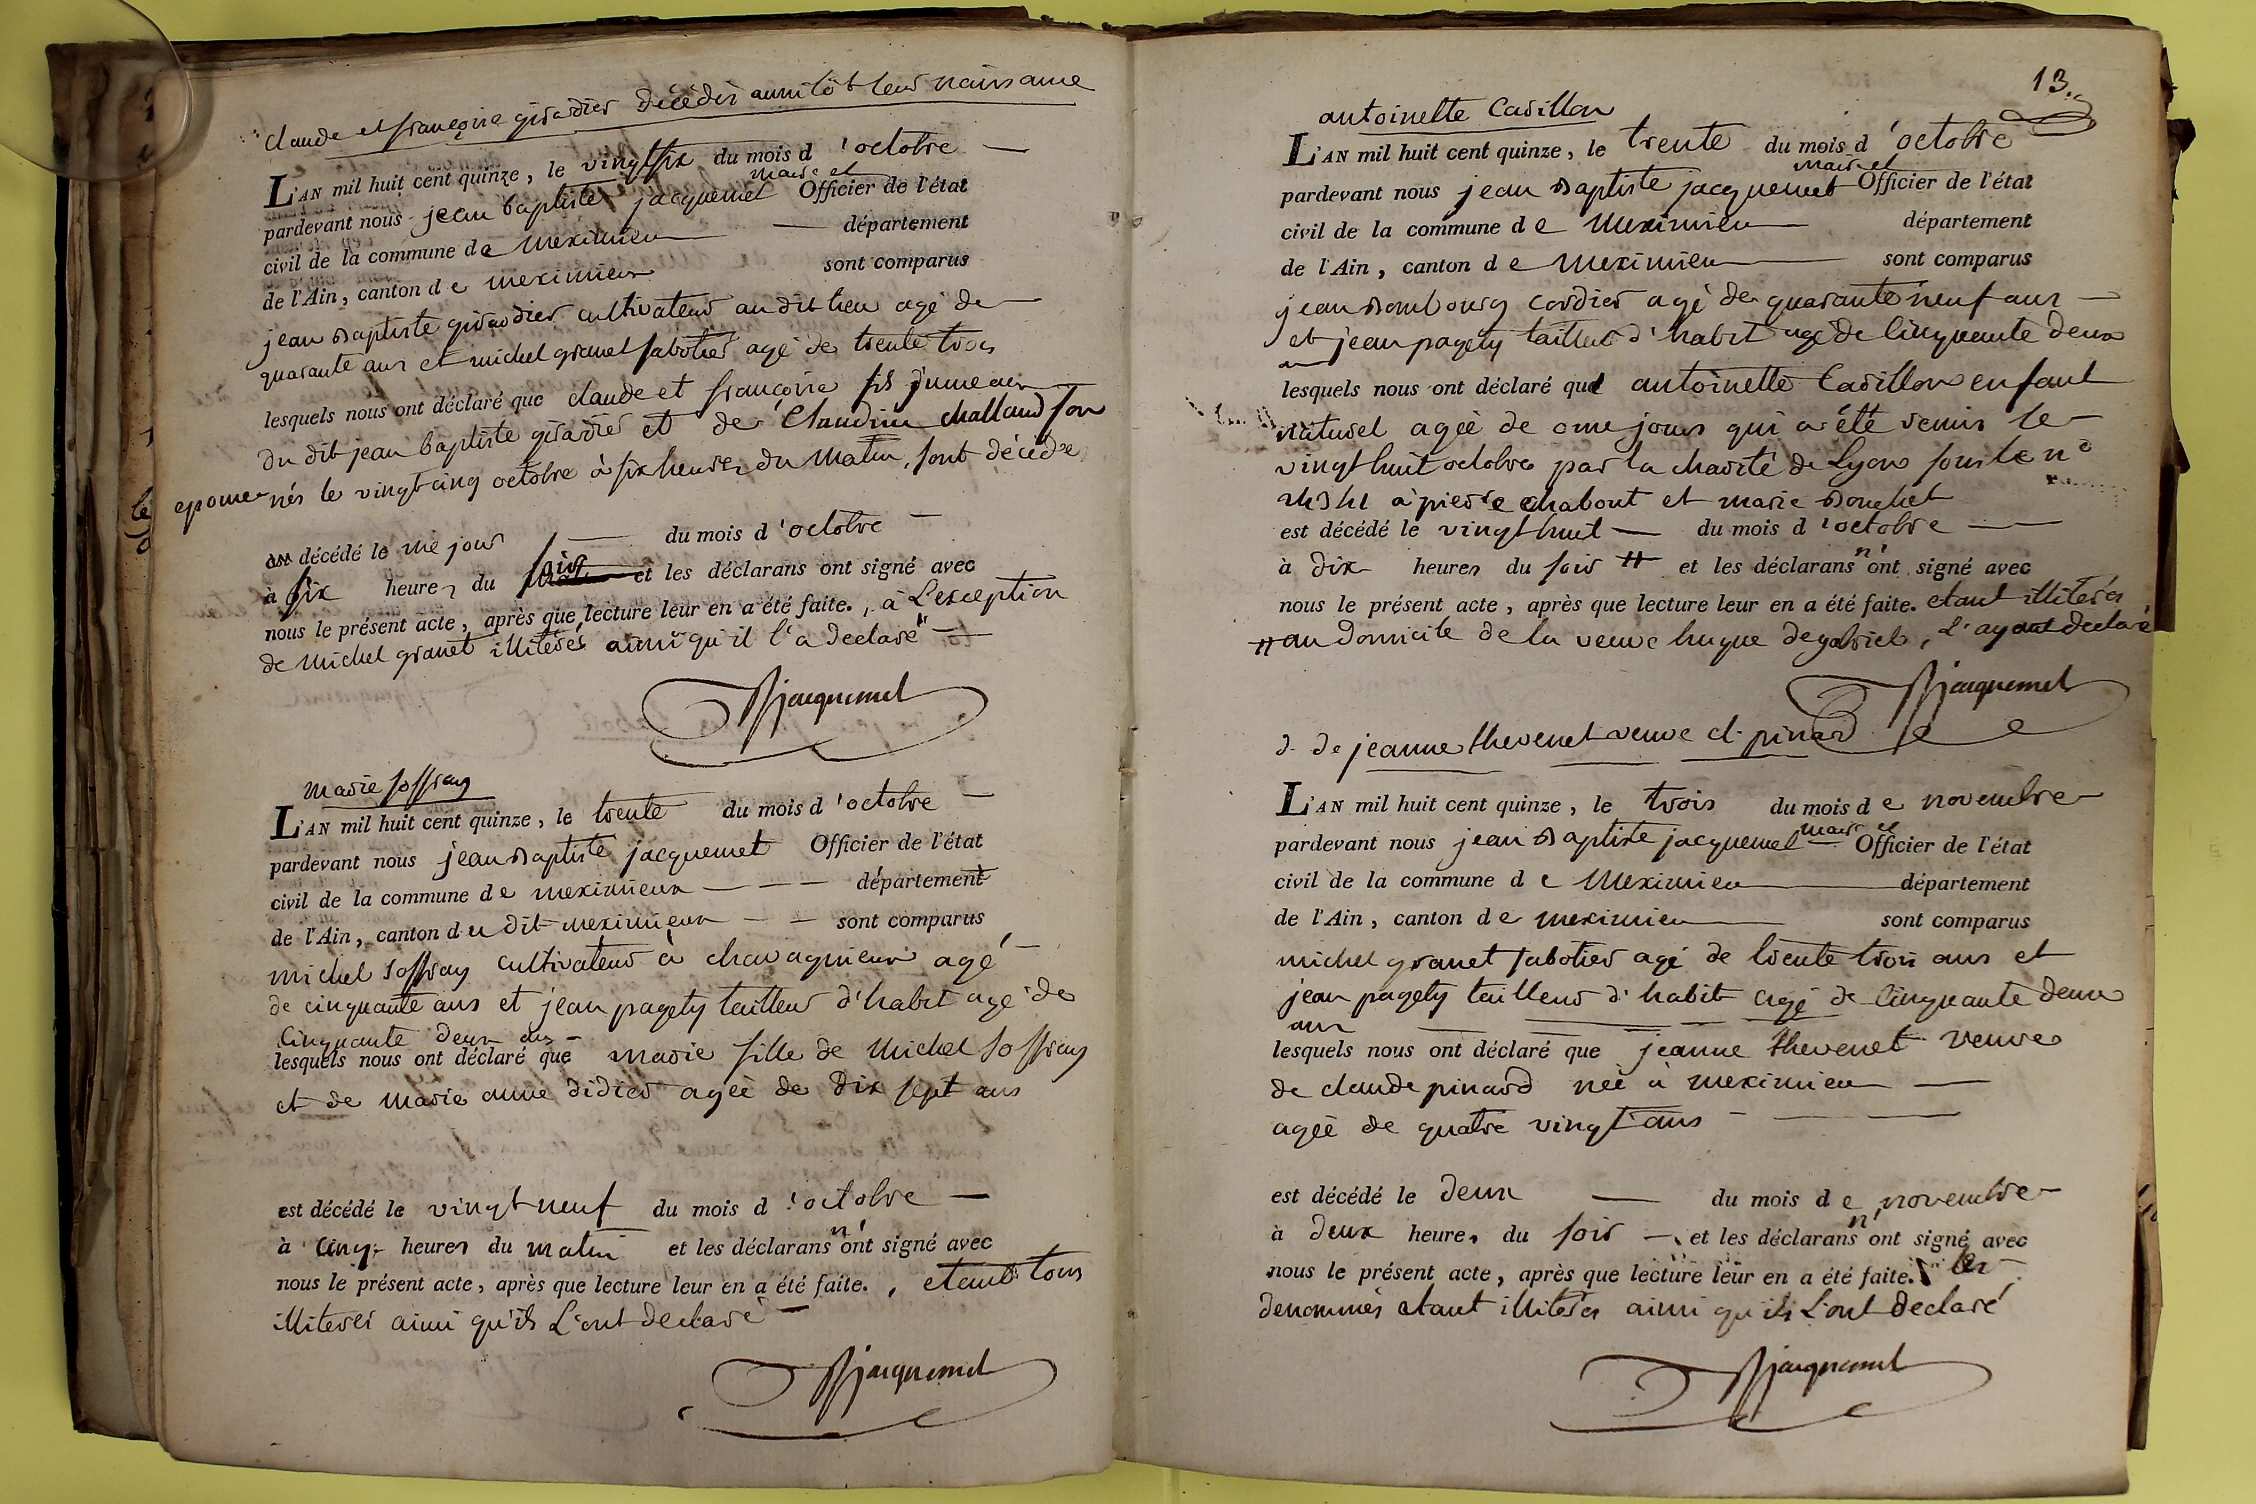 claude et françoise girardier décédés aussitôt leur naissance
L'AN mil huit cent quinze, le vingt six du mois d'octobre
maire et
pardevant nous jean baptiste jacquemet Officier de l'état
civil de la commune de meximieu département
de l'Ain, canton de meximieux sont comparus
jean Baptiste girardier cultivateur au dit lieu agé de
quarante ans et michel granet sabotier agé de trente trois
lesquels nous ont déclaré que claude et françoise fils jumeaux
du dit jean baptiste girardier et de Claudine challand son
epouse nés le vingt cinq octobre à six heures du matin, sont décédés
décédé le me jour du mois d'octobre
à six heures du soir et les déclarans ont signé avec
nous le présent acte, après que lecture leur en a été faite., à L'exception
de michel granet illiteré ainsi qu'il l'a declaré
Bjacquemet
marie soffray
L'AN mil huit cent quinze, le trente du mois d'octobre
pardevant nous jean Baptiste jacquemet Officier de l'état
civil de la commune de meximieux département
de l'Ain, canton du dit meximieux sont comparus
michel soffray cultivateur à chavagnieux agé
de cinquante ans et jean pagety tailleur d'habit agé de
cinquante deux ans
lesquels nous ont déclaré que marie fille de Michel Soffray
et de marie anne didier agée de dix sept ans
est décédé le vingt neuf du mois d'octobre
à cinq heures du matin et les déclarans n'ont signé avec
nous le présent acte, après que lecture leur en a été faite., etant tous
illiterés ainsi qu'ils L'ont declaré
Bjacquemet
13.
antoinette Carillon
L'AN mil huit cent quinze, le trente du mois d'octobre
maire et
pardevant nous jean Baptiste jacquemet Officier de l'état
civil de la commune de Meximieu département
de l'Ain, canton de Meximieu sont comparus
jean Bombourg cordier agé de quarante neuf ans
et jean pagety tailleur d'habit agé de cinquante deux
lesquels nous ont déclaré que antoinette Carillon enfant
naturel agée de onze jours qui a été remis le
vingt huit octobre par la charité de Lyon sous le n°
à pierre chabout et marie Bouchet
est décédé le vingt huit du mois d'octobre
à dix heures du soir # et les déclarans n'ont signé avec
nous le présent acte, après que lecture leur en a été faite. etant illiterés
# au domicile de la veuve hugue degabriel, L'ayant declaré
Bjacquemet
d. de jeanne thevenet veuve cl. pinard
L'AN mil huit cent quinze, le trois du mois de novembre
maire et
pardevant nous jean Baptiste jacquemet Officier de l'état
civil de la commune de Meximieu département
de l'Ain, canton de meximieu sont comparus
michel granet sabotier agé de trente trois ans et
jean pagety tailleur d'habit agé de cinquante deux
ans
lesquels nous ont déclaré que jeanne thevenet veuve
de claude pinard née à meximieu
agée de quatre vingt ans
est décédé le deux du mois de novembre
à deux heures du soir et les déclarans n'ont signé avec
nous le présent acte, après que lecture leur en a été faite. les
denommés etant illiterés ainsi qu'ils L'ont declaré
Bjacquemet